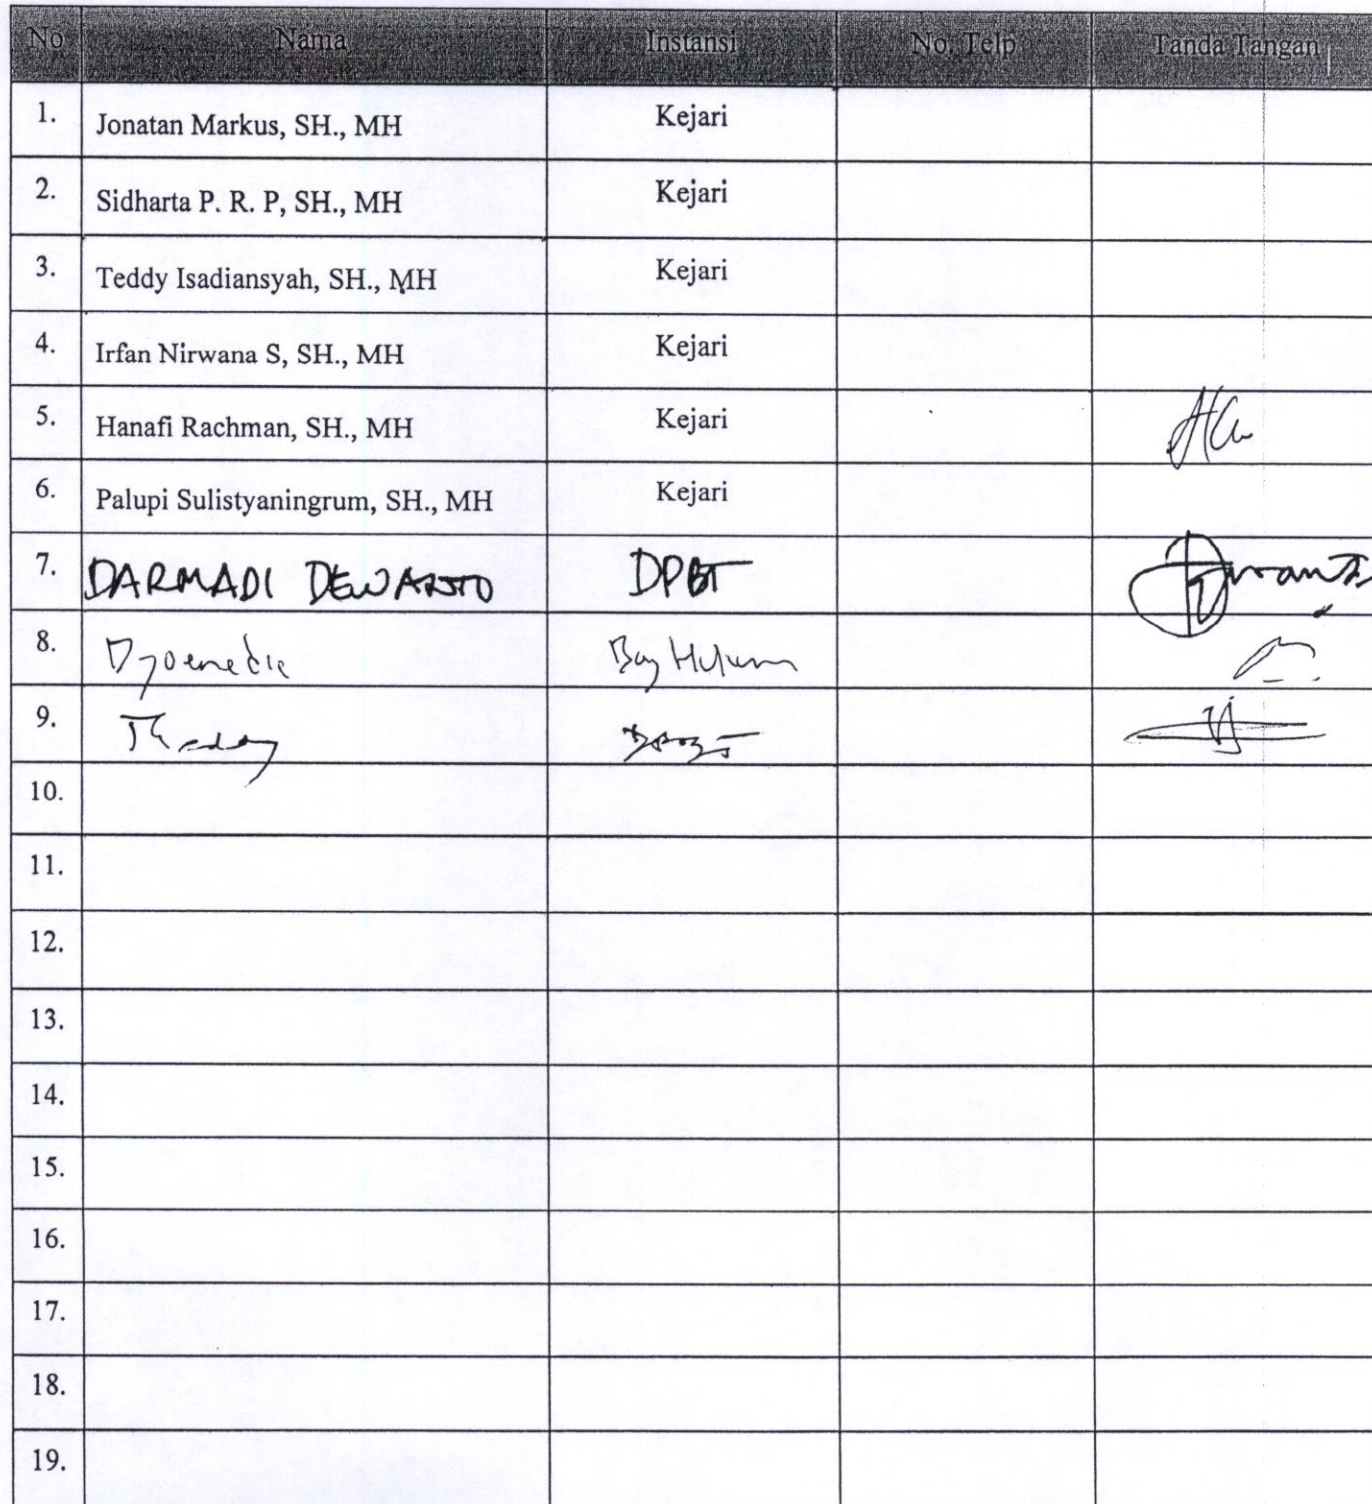 No Nama Instansi No. Telp Tanda Tangan
1. Jonatan Markus, SH., MH Kejari
2. Sidharta P. R. P, SH., MH Kejari
3. Teddy Isadiansyah, SH., MH Kejari
4. Irfan Nirwana S, SH., MH Kejari
5. Hanafi Rachman, SH., MH Kejari
6. Palupi Sulistyaningrum, SH., MH Kejari
7. DARMADI DEWANTO DPBT
8. Djoenedie Bag Hukum
9.
10.
11.
12.
13.
14.
15.
16.
17.
18.
19.